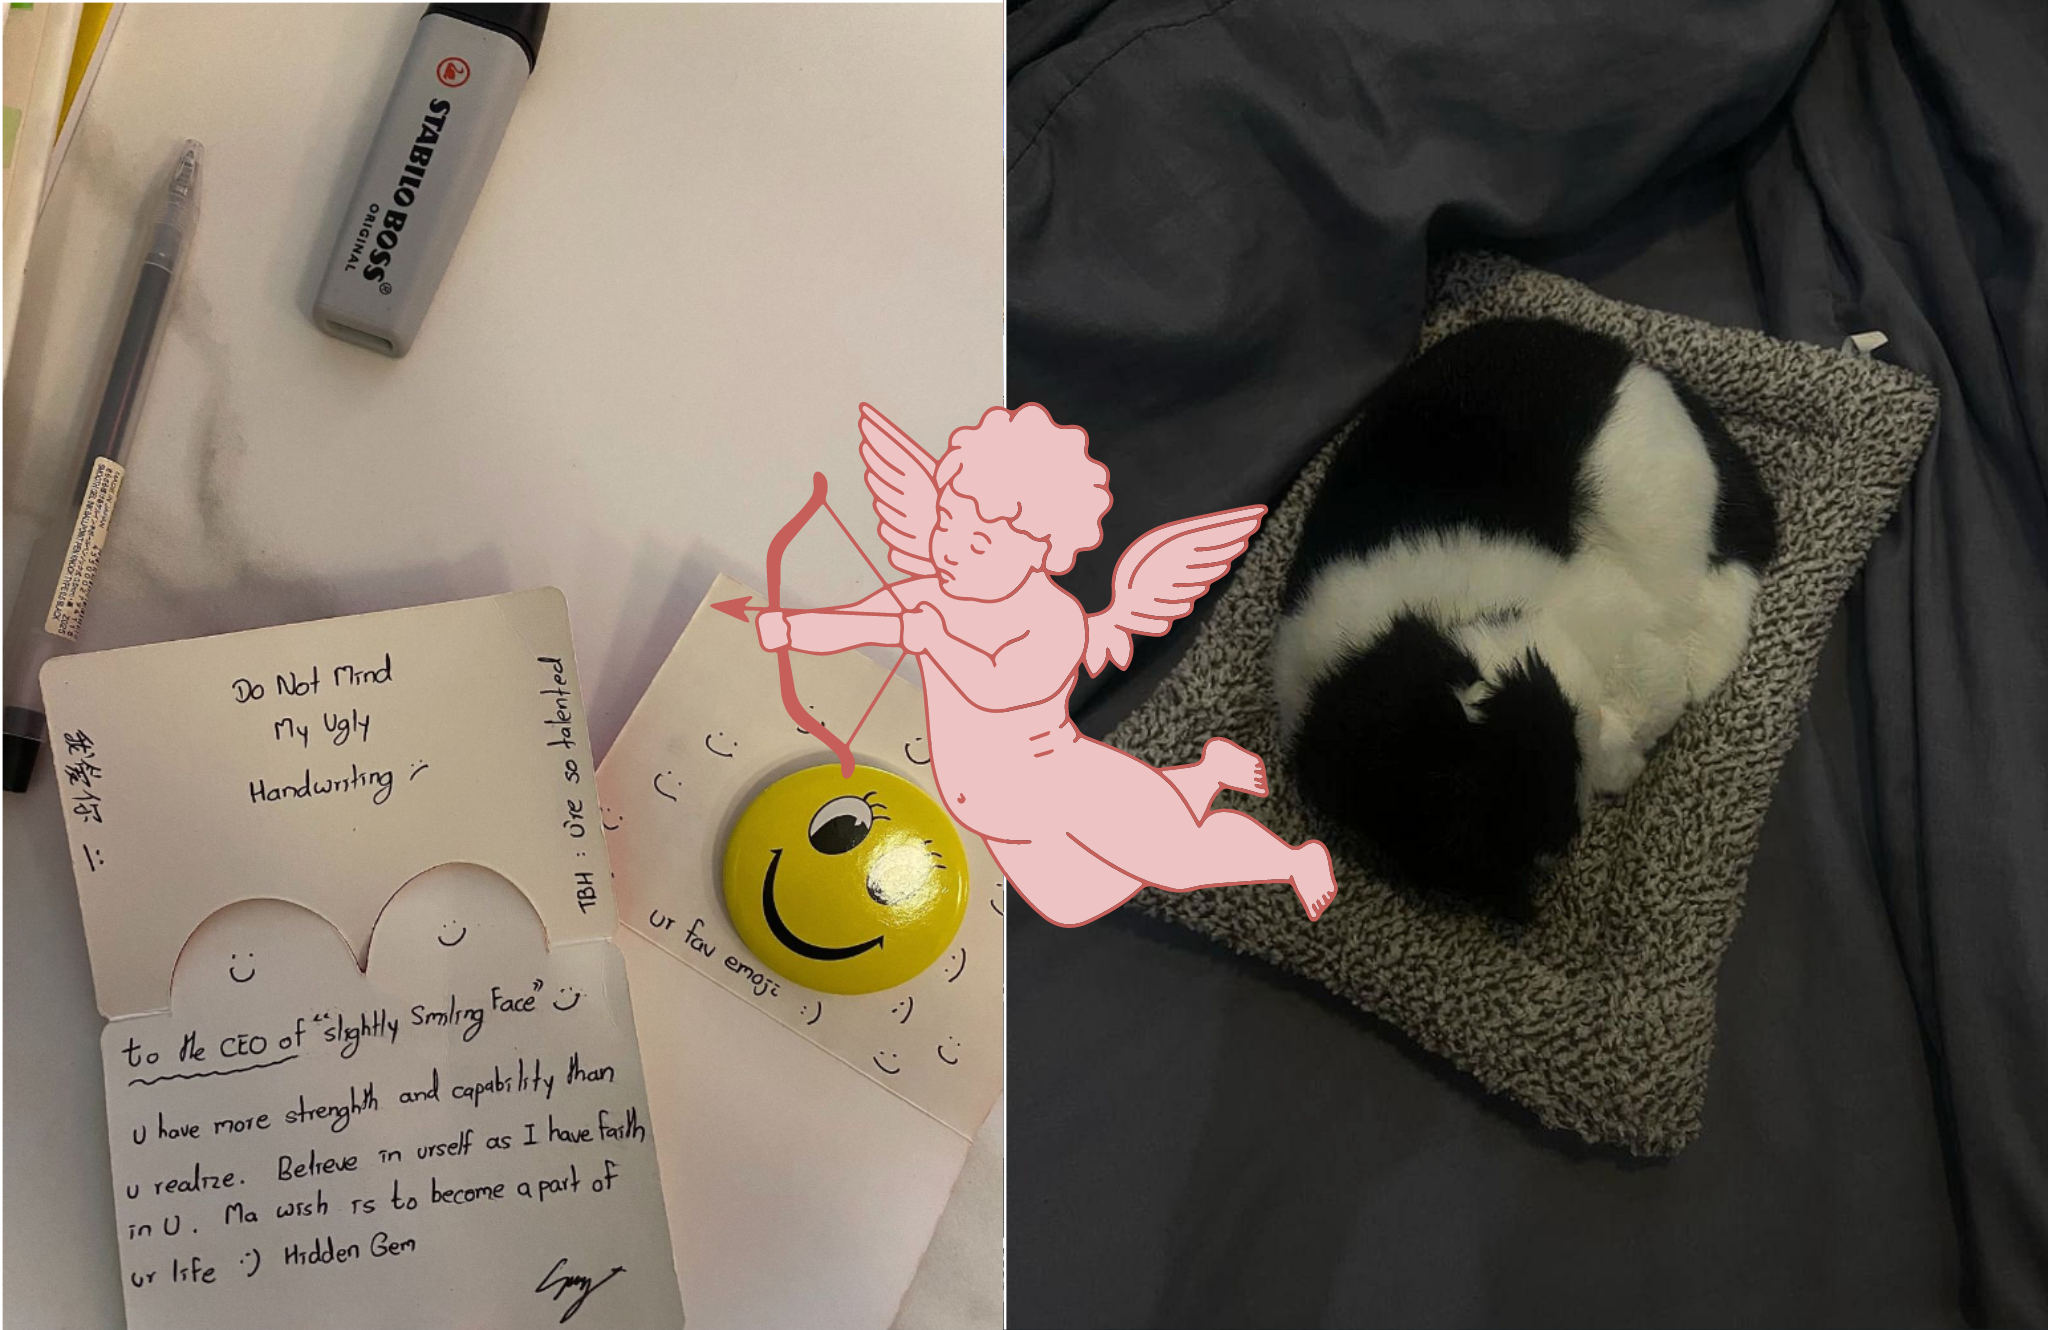 STABILO BOSS
ORIGINAL
Do Not Mind
My Ugly
Handwriting :)
我爱你 :)
TBH : U're so talented
to the CEO of "slightly Smiling Face" :)
u have more strenghth and capability than
u realize. Believe in urself as I have faith
in U. Ma wish is to become a part of
ur life :) Hidden Gem
ur fav emoji :)